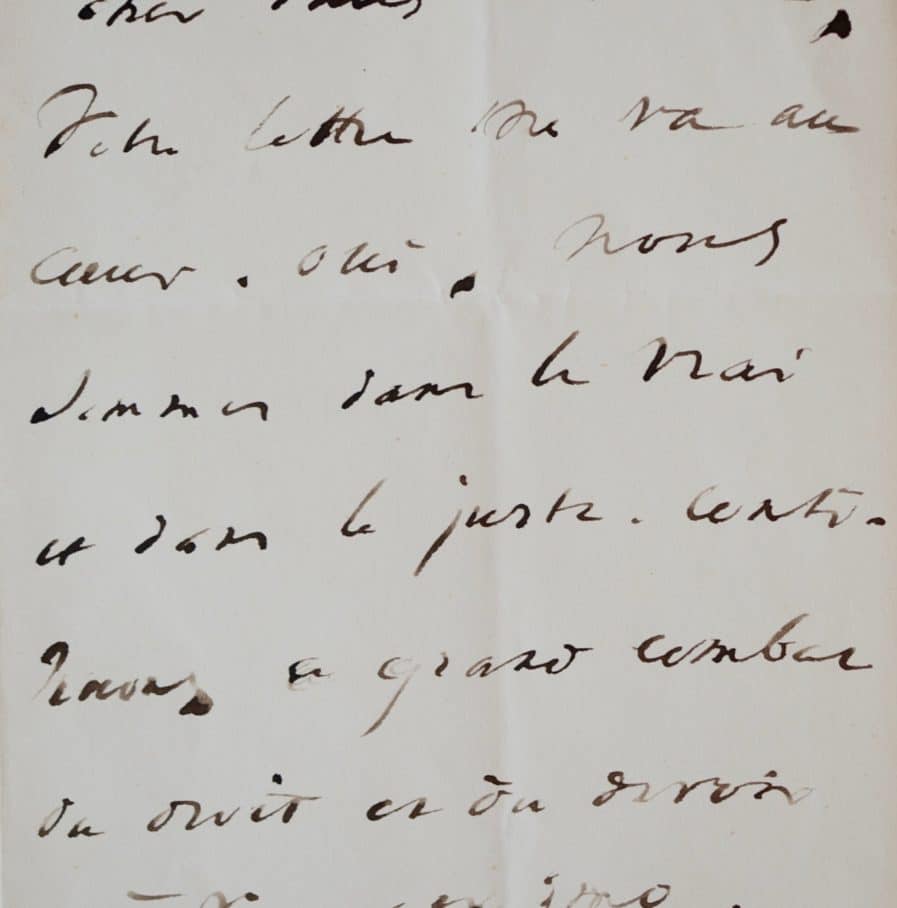 cher
Votre lettre me va au
cœur. oui, nous
sommes dans le vrai
et dans le juste. Conti-
nuons ce grand combat
du droit et du devoir